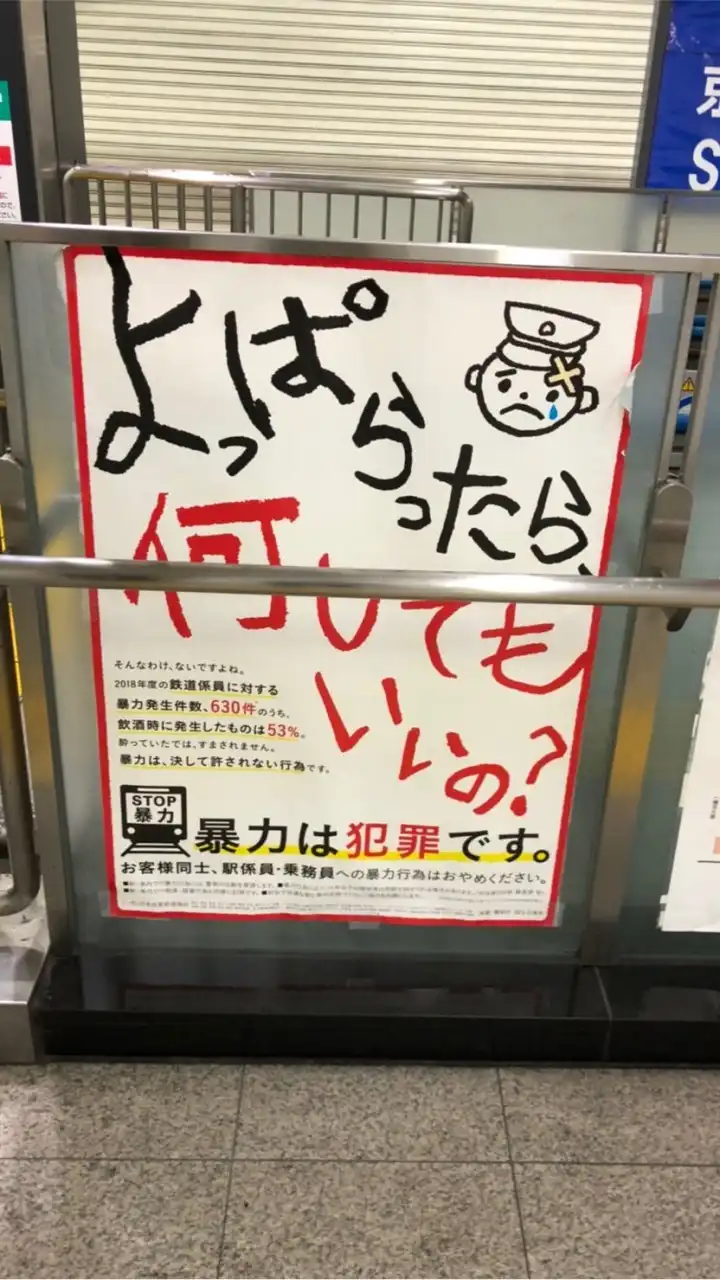 よっぱらったら、
何しても
いいの?
そんなわけ、ないですよね。
2018年度の鉄道係員に対する
暴力発生件数、630件のうち、
飲酒時に発生したものは53%。
酔っていたでは、すまされません。
暴力は、決して許されない行為です。
STOP
暴力
暴力は犯罪です。
お客様同士、駅係員・乗務員への暴力行為はおやめください。